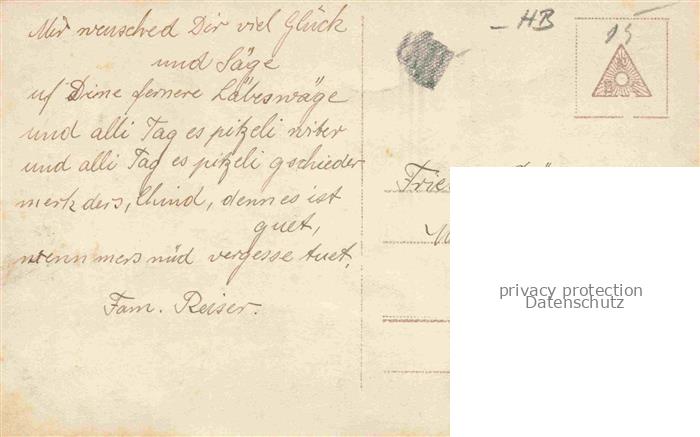 Mir wusched Dir viel Glück
und Säge
uf Dine fernere Läbeswäge
und alli Tag es pitzeli witer
und alli Tag es pitzeli gschieder
merk ders, Chind, denn es ist
guet,
wenn mers nüd vergesse tuet.
Fam. Reiser.
- HB
15
Frie
privacy protection
Datenschutz